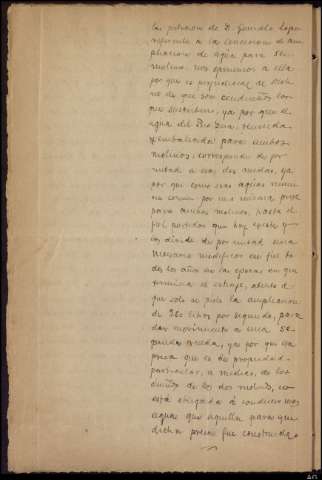 la peticion de D. Gonzalo Lopez
referente a la concesion de am
pliacion de agua para su
molino. nos oponemos a ella
por que es perjudicial al moli
no de que son condueños los
que suscriben, ya por que el
agua del Rio
y embalsada para ambos
molinos, corresponde de por
mitad a sus dos ruedas, ya
por que como esas aguas
por una misma presa
para ambos molinos, hasta el
fiel partidor que hoy existe y
los divide de por mitad seria
necesario modificar ese fiel to
dos los años en las epocas en que
termina el estiaje, puesto
que solo se pide la ampliacion
de 260 litros por segundo, para
dar movimiento a una se
gunda rueda, ya por que la
presa que es de propiedad
particular, a medias, de los
dueños de los dos molinos, no
está obligada á conducir mas
aguas que aquella para que
dicha presa fue construida.